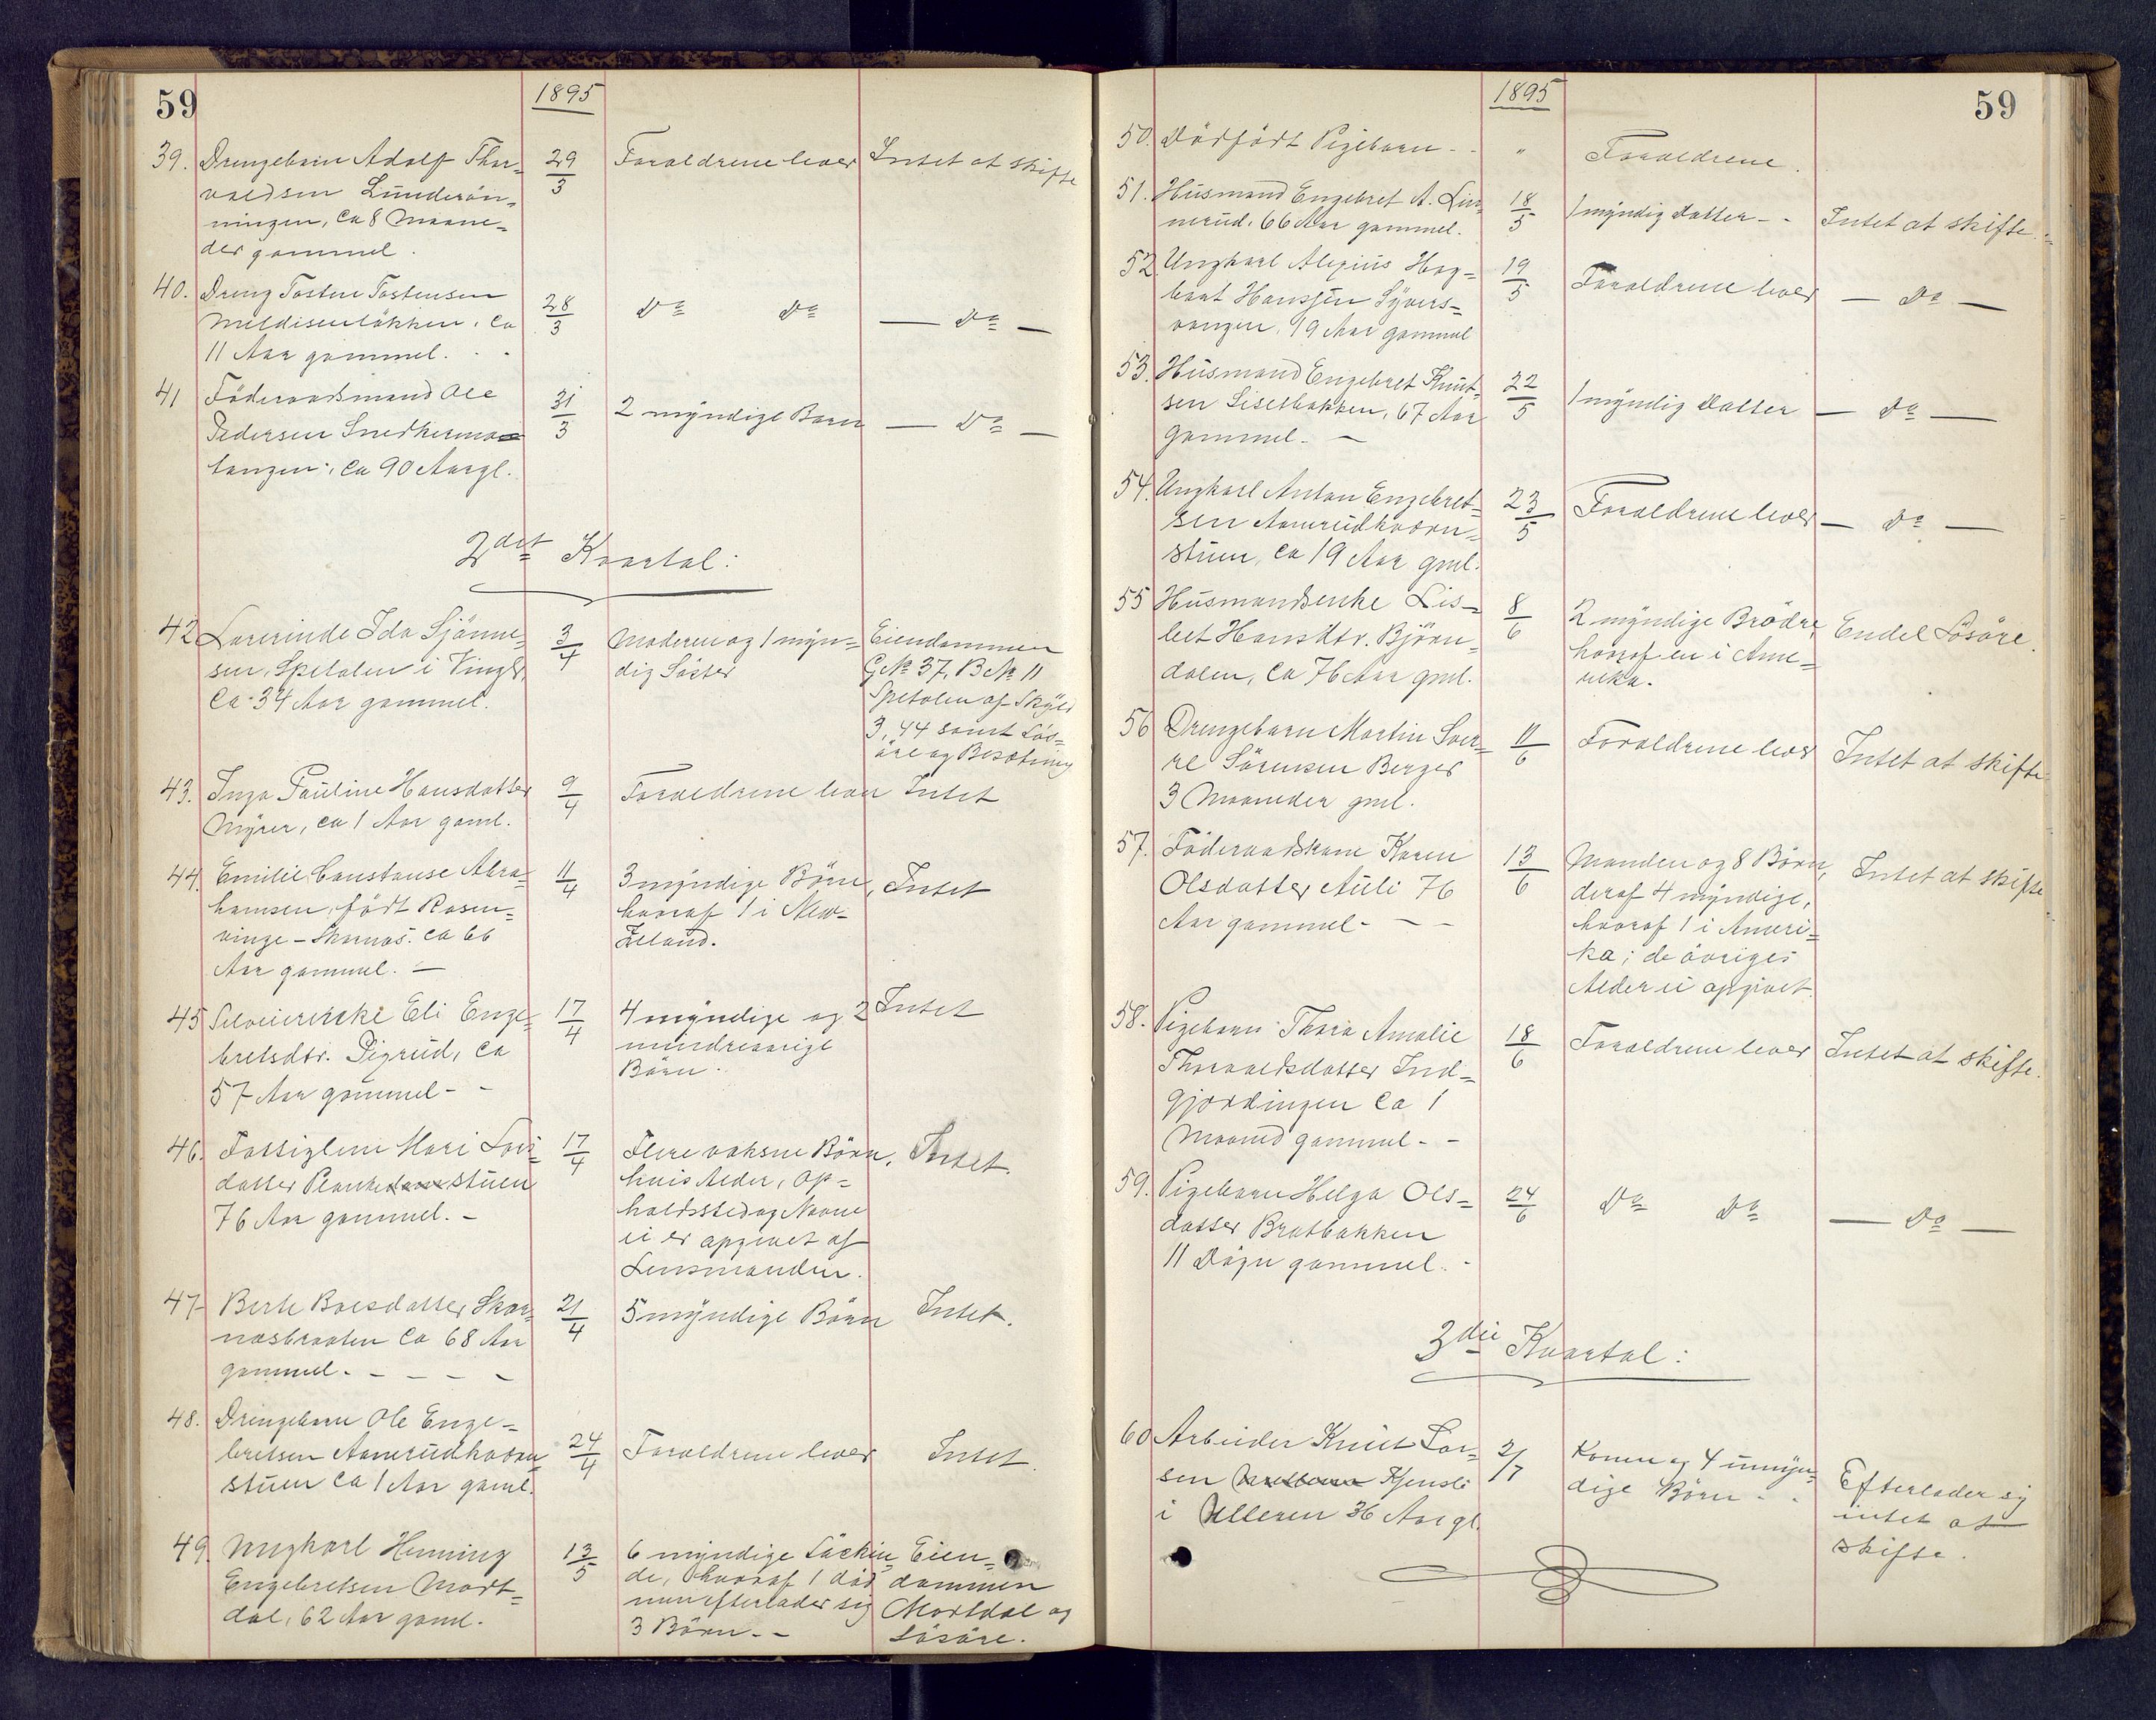 59
1895
39. Drengebarn Adolf Thor-
valdsen Lunderön-
ningen, ca 8 Maane-
der gammel.
29/3
Forældrene lever
Intet at skifte
40. Dreng Tosten Tostensen
Meldisenlökken, ca
11 Aar gammel. - -
28/3
Do Do
— Do —
41 Föderaadsmand Ole
Pedersen Snedkerma
tangen, ca 90 Aar gl.
31/3
2 myndige Barn
— Do —
2det Kvartal:
42 Lærerinde Ida Sjönne-
sen, Spetalen i Vinger,
ca 34 Aar gammel.
3/4
Moderen og 1 myn-
dig Söster
Eiendommen
G No 37, B No 11
Spetalen af Skyld
3,44 samt Lös-
öre og Besætning
43. Inga Pauline Hansdatter
Myrer, ca 1 Aar gaml.
9/4
Forældrene lever
Intet
44. Emilie Constanse Abra-
hamsen, födt Rosen-
vinge - Skarnæs. ca 66
Aar gammel. —
11/4
3 myndige Börn,
hvoraf 1 i New-
Zeland.
Intet
45 Selveierenke Eli Enge-
bretsdtr. Digerud, ca
57 Aar gammel - -
17/4
4 myndige og 2
mindreaarige
Börn.
Intet
46. Fattiglem Mari Lars-
datter Plankestuen
76 Aar gammel. -
17/4
Flere voksne Börn,
hvis Alder, Op-
holdssted og Navne
ei er opgivet af
Lensmanden.
Intet.
47- Berte Boesdatter Skar-
næsbraaten ca 68 Aar
gammel. - - - -
21/4
5 myndige Börn
Intet.
48. Drengebarn Ole Enge-
bretsen Aamrudkværn-
stuen ca 1 Aar gaml.
24/4
Forældrene lever
Intet.
49. Ungkarl Henning
Engebretsen Mort-
dal, 62 Aar gaml.
13/5
6 myndige Söskin-
de, hvoraf 1 död
men efterlader sig
3 Börn. -
Eien-
dommen
Mortdal og
Lösöre.
59
1895
50. Dödfödt Pigebarn - -
"
Forældrene.
51. Husmand Engebret A. Lin-
nerud. 66 Aar gammel.
18/5
1 myndig Datter - -
Intet at skifte.
52 Ungkarl Alexius Hag-
bart Hanssen Syvers-
vangen, 19 Aar gammel
19/5
Forældrene lever
— Do —
53. Husmand Engebret Knut-
sen Lisetbakken, 67 Aar
gammel. —
22/5
1 myndig Datter
— Do —
54. Ungkarl Anton Engebret-
sen Aamrudkværn-
stuen, ca 19 Aar gml.
23/5
Forældrene lever
— Do —
55 Husmandsenke Lis-
bet Hansdtr. Björn-
dalen, ca 76 Aar gml.
8/6
2 myndige Brödre,
hvoraf en i Ame-
rika.
Endel Lösöre.
56 Drengebarn Martin Sver-
re Sörensen Berger
3 Maaneder gml.
11/6
Forældrene lever
Intet at skifte
57. Föderaadskone Karen
Olsdatter Auli 76
Aar gammel - - -
13/6
Manden og 8 Börn,
deraf 4 myndige,
hvoraf 1 i Ameri-
ka; de övriges
Alder ei opgivet.
Intet at skifte
58. Pigebarn Thora Amalie
Thorvaldsdatter Ind-
gjordingen ca 1
Maaned gammel - -
18/6
Forældrene lever
Intet at skifte.
59. Pigebarn Helga Ols-
datter Bratbakken
11 Dögn gammel. -
24/6
Do Do
— Do —
3die Kvartal:
60 Arbeider Knut Lar-
sen Kjensli
i Ulleren 36 Aar gl.
2/7
Konen og 4 umyn-
dige Börn - -
Efterlader sig
intet at
skifte.